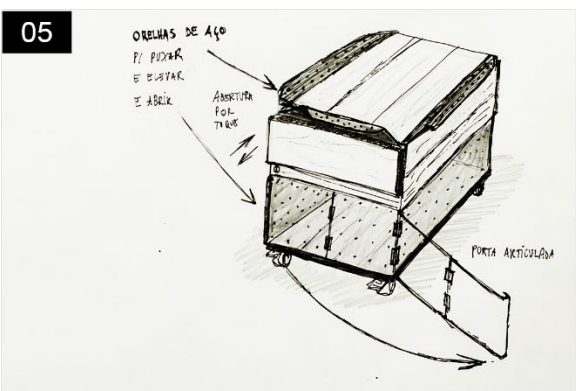 05
ORELHAS DE AÇO
P/ PUXAR
E ELEVAR
E ABRIR
ABERTURA
POR
TOQUE
PORTA ARTICULADA